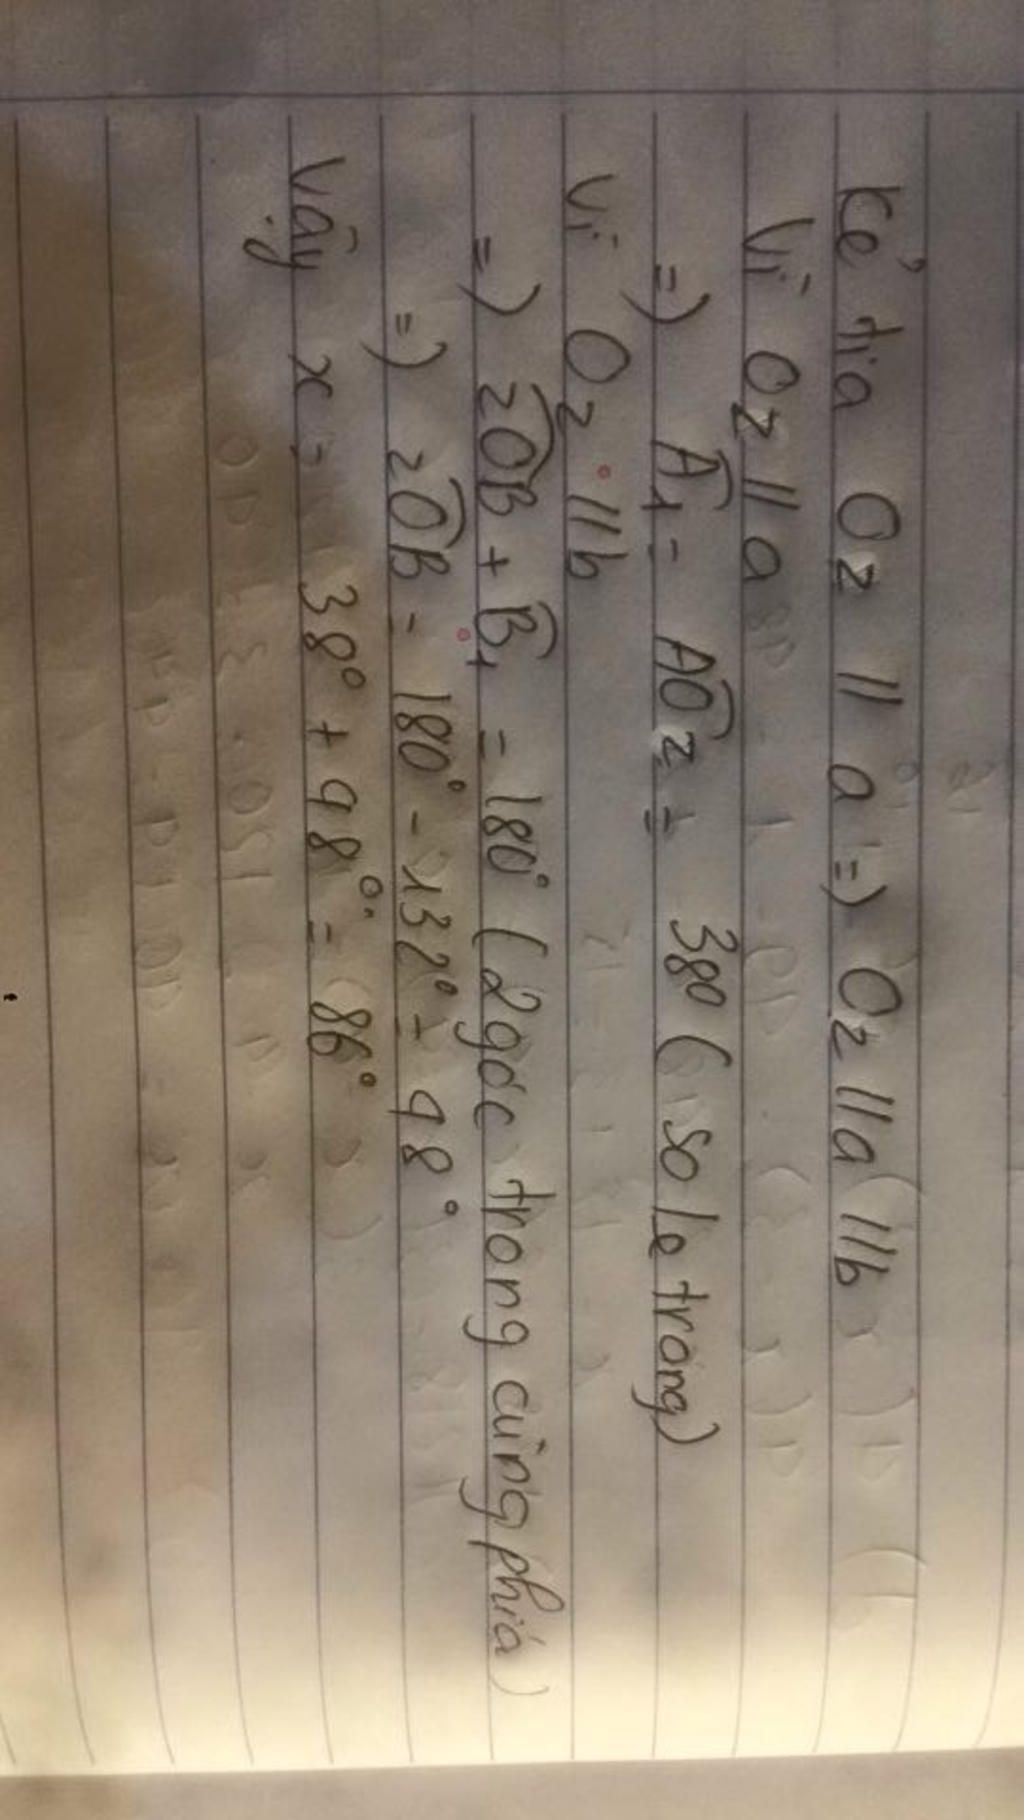 Kẻ tia Oz // a => Oz //a //b
Vì Oz // a
=> Â₁ = AÔz = 38° ( so le trong)
Vì Oz // b
=> zÔB + B̂₁ = 180° ( 2 góc trong cùng phía)
=> zÔB = 180° - 132° = 48°
Vậy x = 38° + 48° = 86°